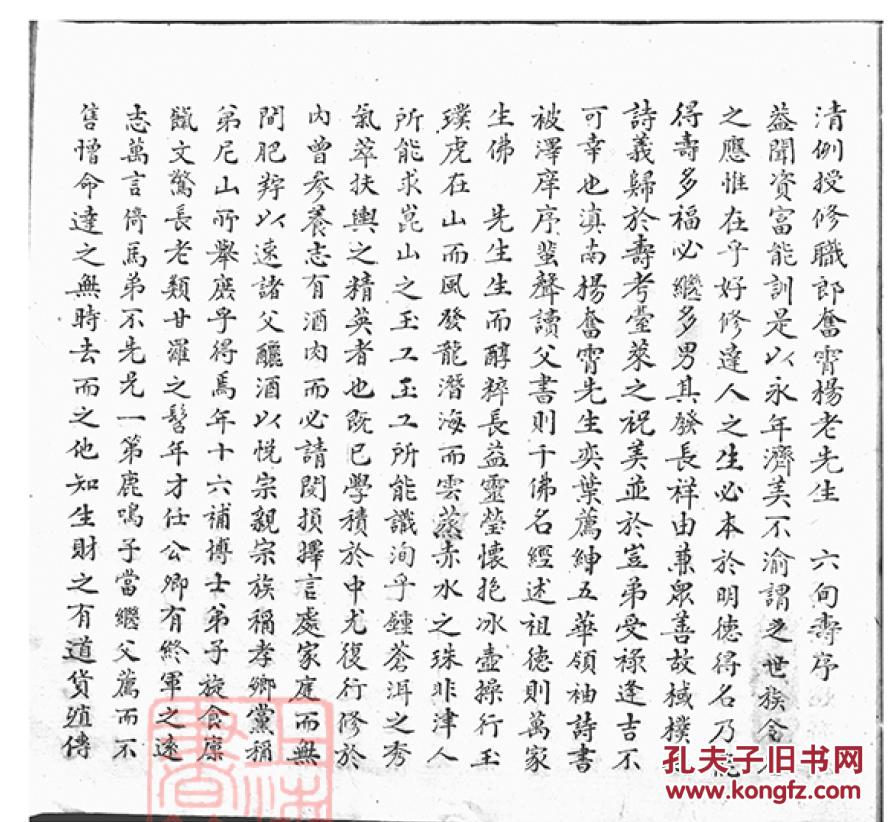 清例授修職郎奮霄楊老先生　六旬壽序
益聞資富能訓是以永年濟美不渝謂之世族
之應惟在乎好修達人之生必本於明德得名乃
得壽多福必繼多男其發長祥由兼眾善故棫樸
詩義歸於壽考臺萊之祝美並於豈弟受祿逢吉不
可幸也滇南楊奮霄先生奕葉薦紳五華領袖詩書
被澤庠序蜚聲讀父書則千佛名經述祖德則萬家
生佛　先生生而醇粹長益靈瑩懷抱冰壺操行玉
璞虎在山而風發龍潛海而雲蒸赤水之珠非津人
所能求崑山之玉工玉工所能識洵乎鍾蒼洱之秀
氣萃扶輿之精英者也既已學積於中尤復行修於
內曾參養志有酒肉而必請閔損擇言處家庭而無
間肥羜以速諸父釃酒以悅宗親宗族稱孝鄉黨稱
弟尼山所舉庶乎得焉年十六補博士弟子旋食廩
餼文驚長老類甘羅之髫年才任公卿有終軍之遠
志萬言倚馬弟不先兄一第鹿鳴子當繼父薦而不
售憎命達之無時去而之他知生財之有道貨殖傳
孔夫子旧书网
www.kongfz.com